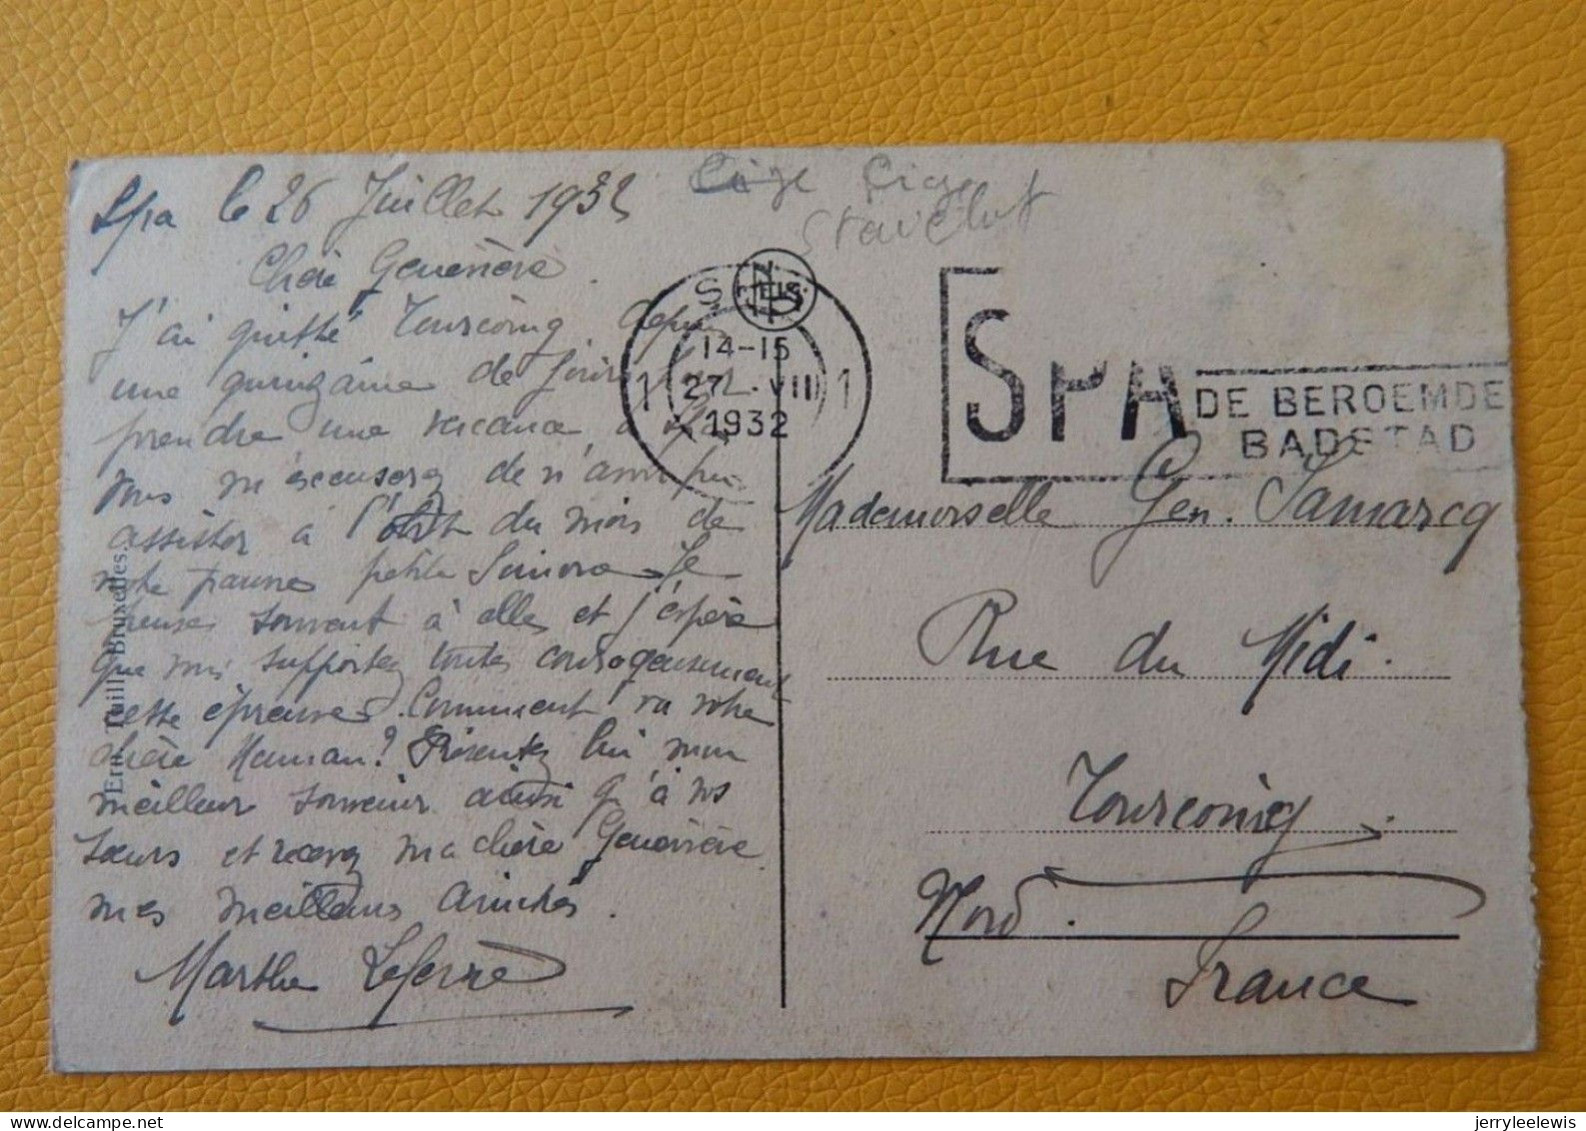 Liège Liège
Stavelot
Spa le 26 Juillet 1932
Chère Geneviève
J'ai quitté Tourcoing depuis
une quinzaine de jours pour
prendre une vacance à Spa
vous m'excuserez de n'avoir pu
assister à l'obit du mois de
votre pauvre petite Simone. Je
pense souvent à elle et j'espère
que vous supportez toutes courageusement
cette épreuve. Comment va votre
chère Maman? Présentez lui mon
meilleur souvenir ainsi qu'à vos
sœurs et recevez ma chère Geneviève
mes meilleurs amitiés.
Marthe Lefevre
Ern. Thill, Bruxelles.
NELS
S
14-15
1 27 VII 1
1932
SPA
DE BEROEMDE
BADSTAD
Mademoiselle Gen. Samarcq
Rue du Midi.
Tourcoing.
Nord.
France
jerryleelewis